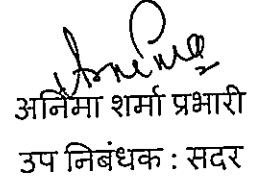 अनिमा शर्मा प्रभारी
उप निबंधक : सदर